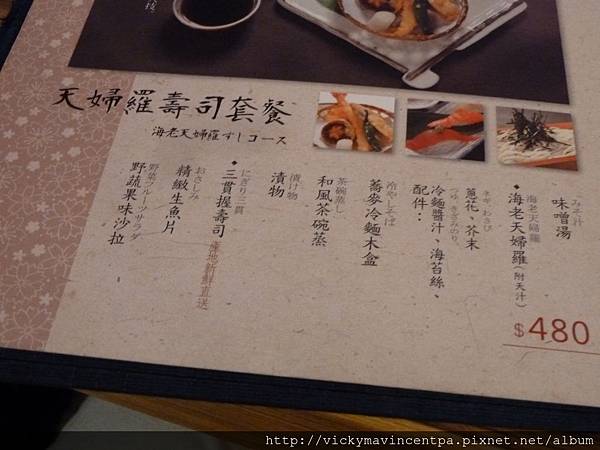 天婦羅壽司套餐
海老天婦羅すしコース
野菜フルーツサラダ
野蔬果味沙拉
おさしみ
精緻生魚片
にぎり三貫
◆三貫握壽司 產地新鮮直送
漬け物
漬物
茶碗蒸し
和風茶碗蒸
冷やしそば
蕎麥冷麵木盒
配件：
つゆ、きざみのり、
冷麵醬汁、海苔絲、
ネギ、わさび
蔥花、芥末
海老天婦羅
◆海老天婦羅(附天汁)
みそ汁
味噌湯
$480
http://vickymavincentpa.pixnet.net/album